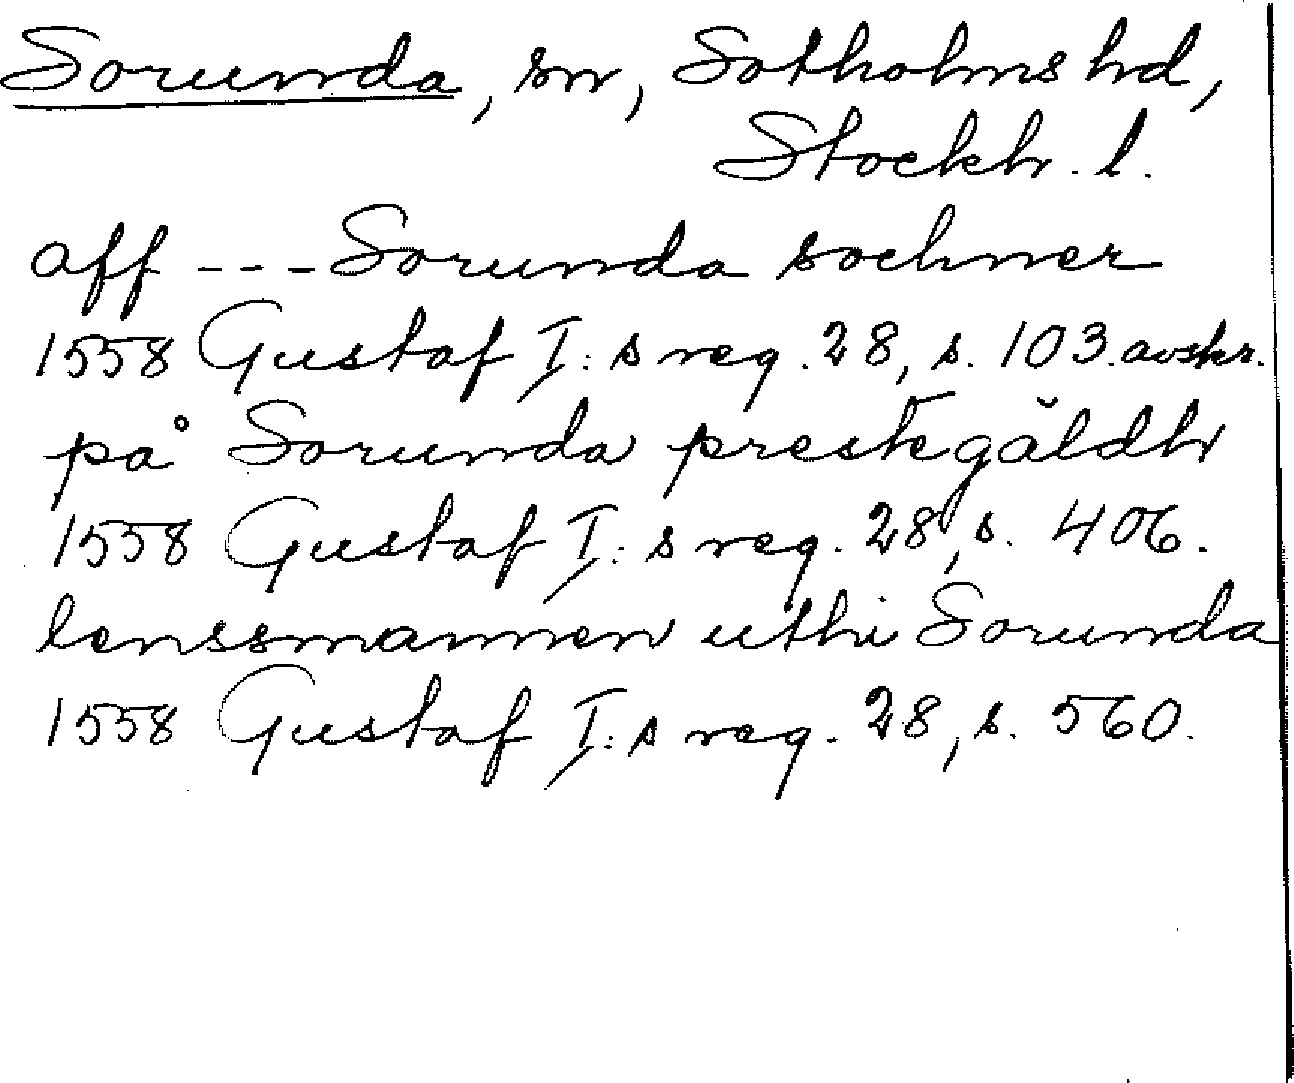 Sorunda, sn, Sotholms hd,
Stockh. l.
aff --- Sorunda sochner
1558 Gustaf I:s reg. 28, s. 103. avskr.
på Sorunda prestegäldh
1558 Gustaf I:s reg. 28, s. 406.
lenssmannen uthi Sorunda
1558 Gustaf I:s reg. 28, s. 560.